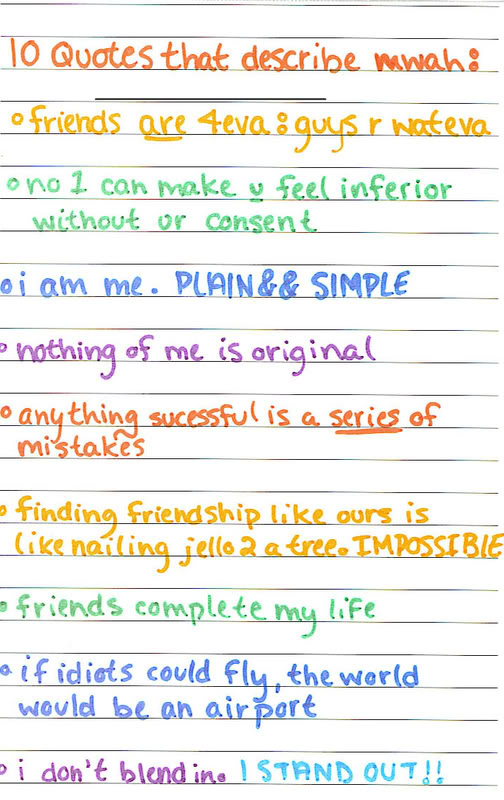 10 Quotes that describe mwah:
friends are 4eva : guys r wateva
no 1 can make u feel inferior
without or consent
i am me. PLAIN && SIMPLE
nothing of me is original
anything sucessful is a series of
mistakes
finding friendship like ours is
like nailing jello 2 a tree. IMPOSSIBLE
friends complete my life
if idiots could fly, the world
would be an airport
i don't blend in. I STAND OUT!!